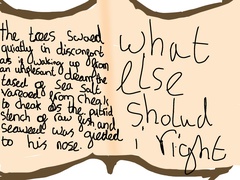 the trees swored
quietly in discomfort
as if waking up from
an unplesant dream the
tased of Sea Salt
varpoed from cheak
to cheak as the putrid
stench of raw fish and
seaweed was guided
to his nose.
what
else
sholud
i right